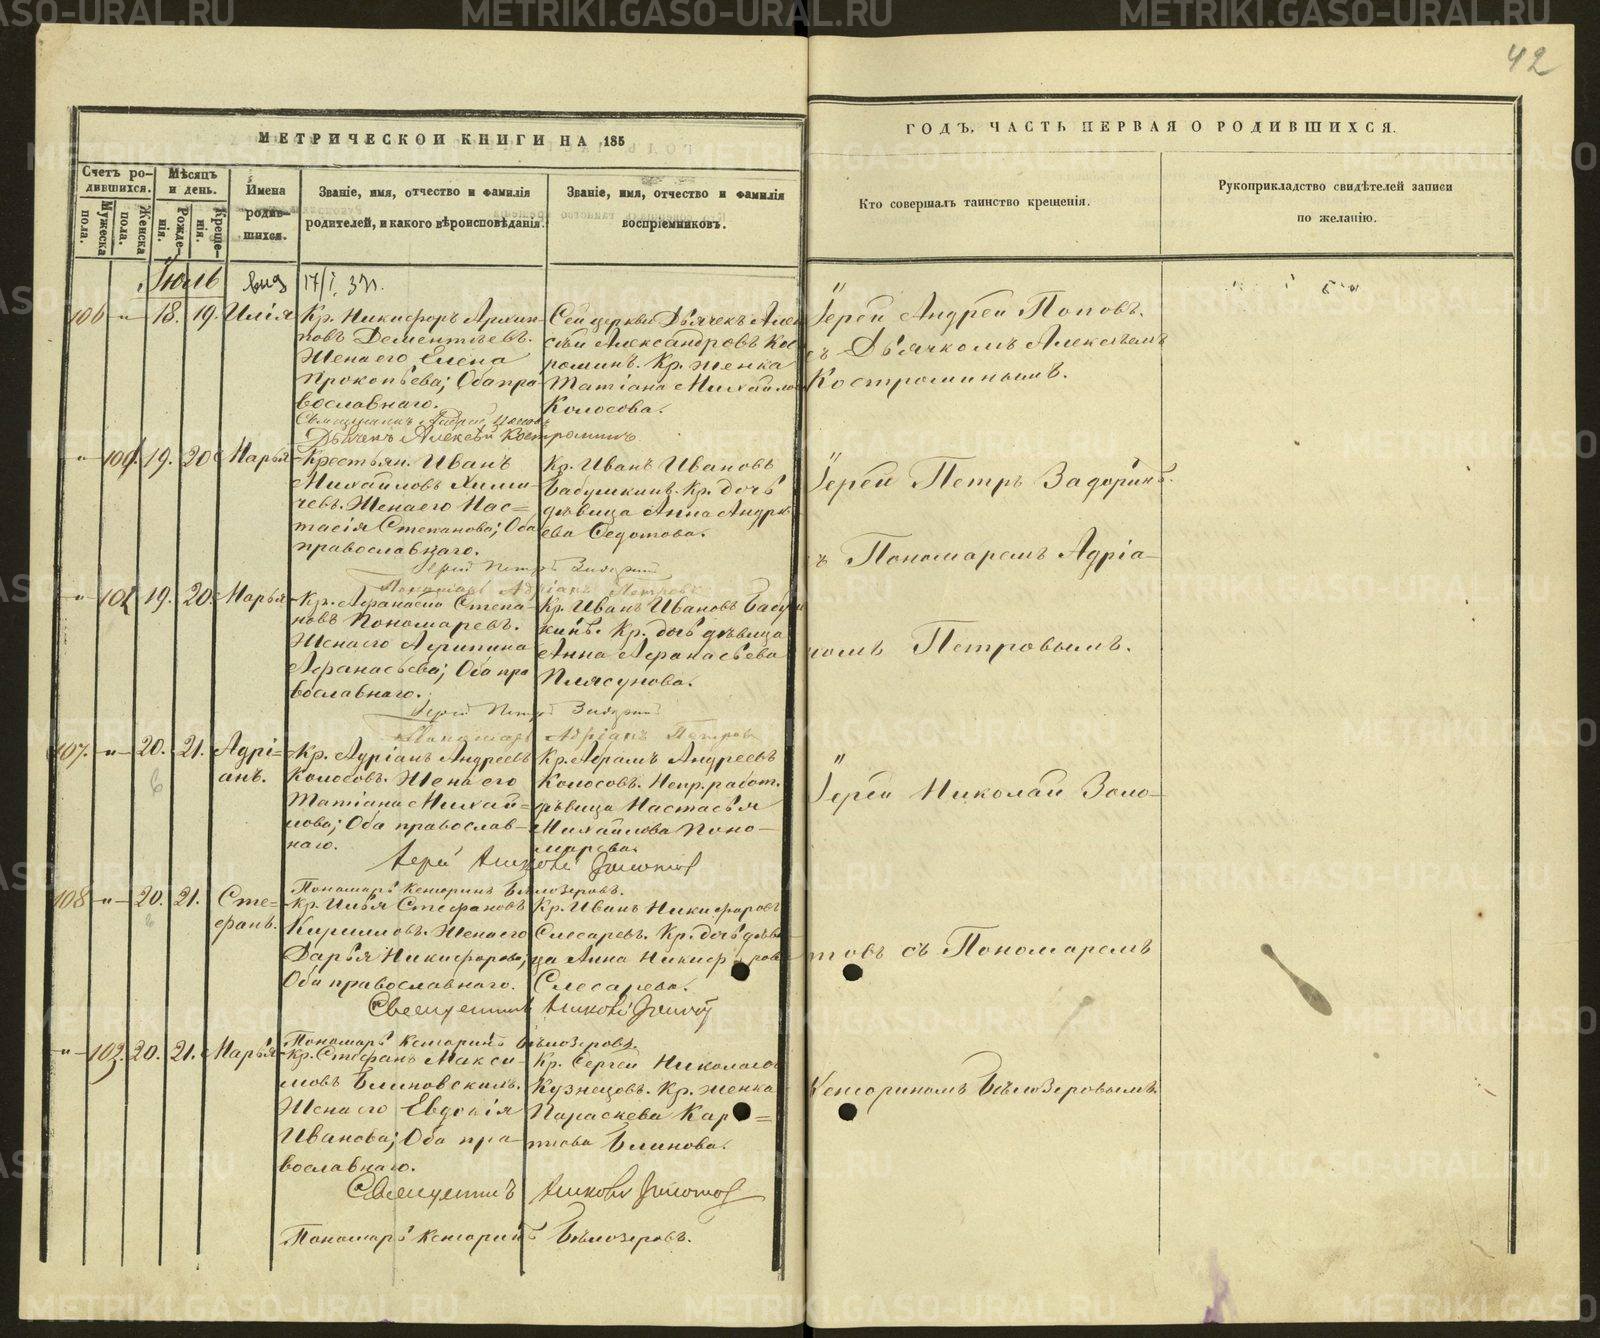 42
МЕТРИЧЕСКОИ КНИГИ НА 185
ГОДЪ, ЧАСТЬ ПЕРВАЯ О РОДИВШИХСЯ.
Счетъ ро-
дившихся.
Мужеска
пола.
Женска
пола.
Мѣсяцъ
и день.
Рожде-
нія.
Креще-
нія.
Имена
родив-
шихся.
Званіе, имя, отчество и фамилія
родителей, и какого вѣроисповѣданія.
Званіе, имя, отчество и фамилія
воспріемниковъ.
Кто совершалъ таинство крещенія.
Рукоприкладство свидѣтелей записи
по желанію.
Іюль
106 – 18. 19. Илія
Кр. Никифоръ Архип-
повъ Дементьевъ.
Жена его Елена
Прокопьева; Оба пра-
вославнаго.
Сей церкви Дьячекъ Алек
сѣй Александровъ Кос
роминъ. Кр. женка
Татіана Михайлов
Колосова.
Дьячекъ Алексѣй Костроминъ
Іерей Андрей Поповъ.
съ Дьячкомъ Алексѣемъ
Костроминымъ.
19. 20 Марья
Крестьян. Иванъ
Михайловъ
Жена его Нас=
тасія Степанова; Оба
православнаго.
Кр. Иванъ Ивановъ
Бабушкинъ. Кр. дочь
дѣвица Анна Андрѣ
ева Федотова.
Іерей Петръ Задоринъ
Пономарь Адріанъ Петровъ
Іерей Петръ Задоринъ.
ъ Пономаремъ Адріа-
номъ Петровымъ.
102 19. 20. Марья
Кр. Афанасій Степа-
новъ Пономаревъ.
Жена его Агрипина
Афанасьева; Оба пра
вославнаго.
Кр. Иванъ Ивановъ Бабуш
кинъ. Кр. дочь дѣвица
Анна Афанасьева
Плясунова.
Іерей Петръ Задоринъ
Пономарь Адріанъ Петровъ
107. – 20. 21. Адрі=
анъ.
Кр. Адріанъ Андреевъ
Колосовъ. Жена его
Татіана Михай=
лова; Оба православ-
наго.
Кр. Абрамъ Андреевъ
Колосовъ. Непр. работ.
дѣвица Настасья
Михайлова Поно-
марева.
Іерей Николай Золотовъ
Пономарь Кенсоринъ Бѣлозеровъ.
Іерей Николай Золо-
товъ съ Пономаремъ
Кенсориномъ Бѣлозеровымъ.
108 – 20. 21. Сте=
фанъ.
Кр. Илья Стефановъ
Кириловъ. Жена его
Дарья Никифорова;
Оба православнаго.
Кр. Иванъ Никифоровъ
Слесаревъ. Кр. дочь дѣви
ца Анна Никифорова
Слесарева.
Священникъ Николай Золотовъ
Пономарь Кенсоринъ Бѣлозеровъ.
– 103. 20. 21. Марья
Кр. Стефанъ Макси-
мовъ Блиновскихъ.
Жена его Евдокія
Иванова; Оба пра-
вославнаго.
Кр. Сергей Николаевъ
Кузнецовъ. Кр. женка
Параскева Кар=
пова Блинова.
Священникъ Николай Золотовъ
Пономарь Кенсоринъ Бѣлозеровъ.
METRIKI.GASO-URAL.RU